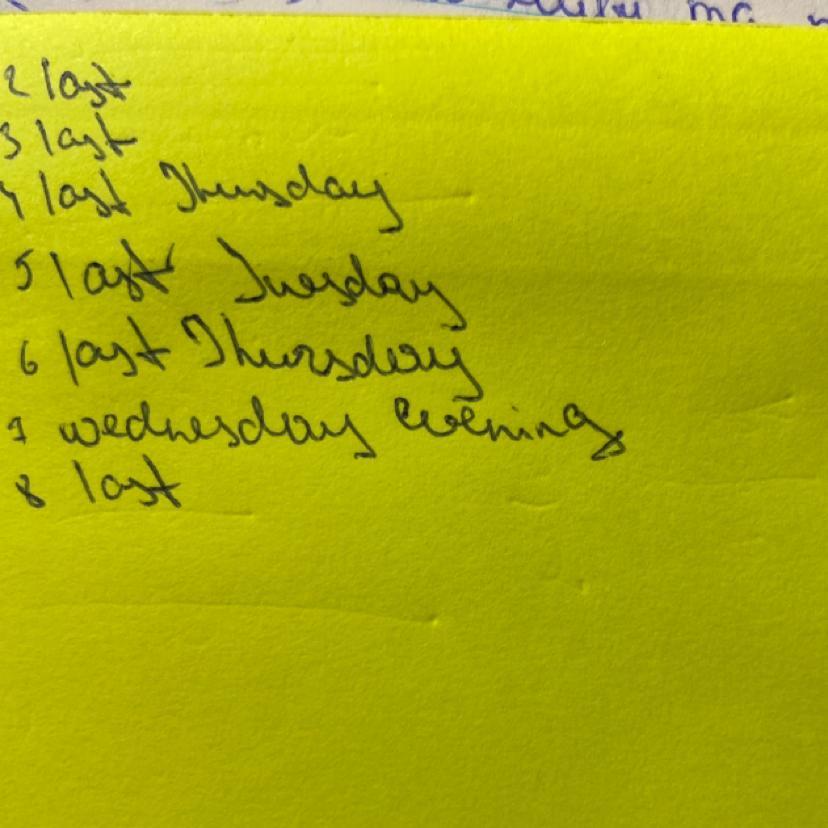 ma
2 last
3 last
4 last Thursday
5 last Tuesday
6 last Thursday
7 wednesday evening
8 last